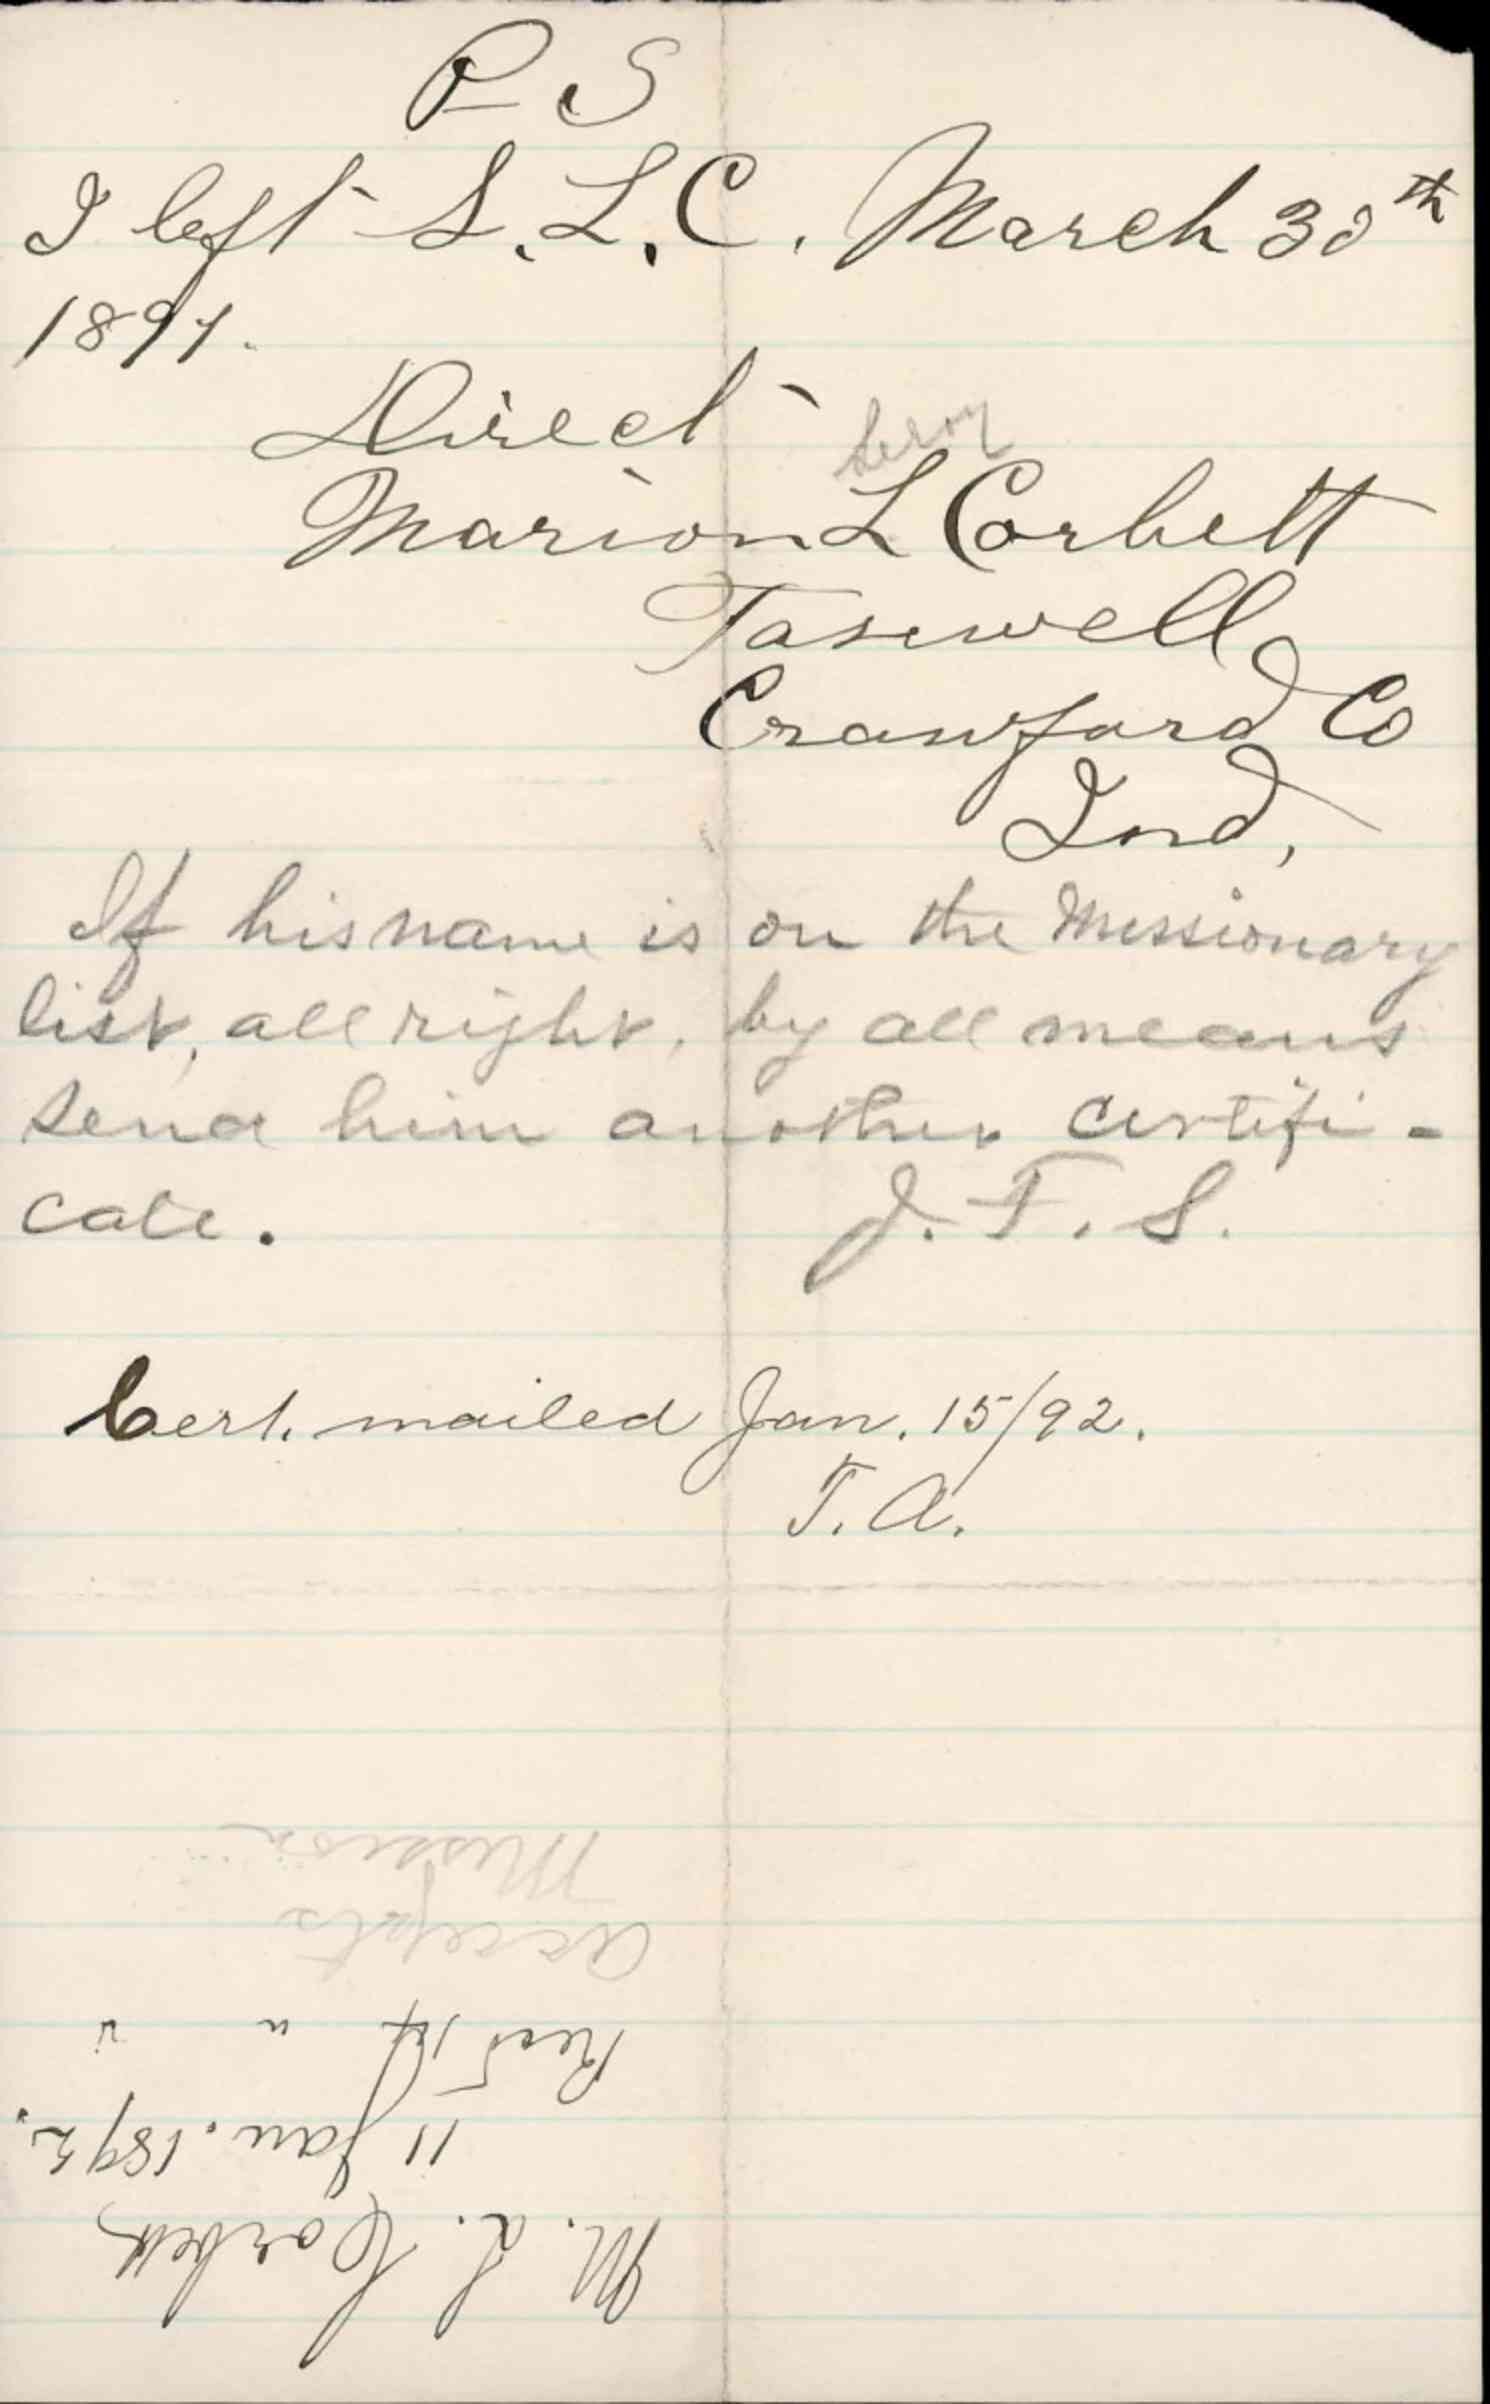 P S
I left S. L. C. March 30th
1891.
Direct
Leroy
Marion L Corbett
Tasewell
Crawford Co
Ind,
If his name is on the Missionary
list, all right, by all means
send him another certifi-
cate.
J. F. S.
Cert. mailed Jan. 15/92.
T. A.
M. L. Corbett
11 Jan. 1892.
Recd 14 " "
Accepts
Mission